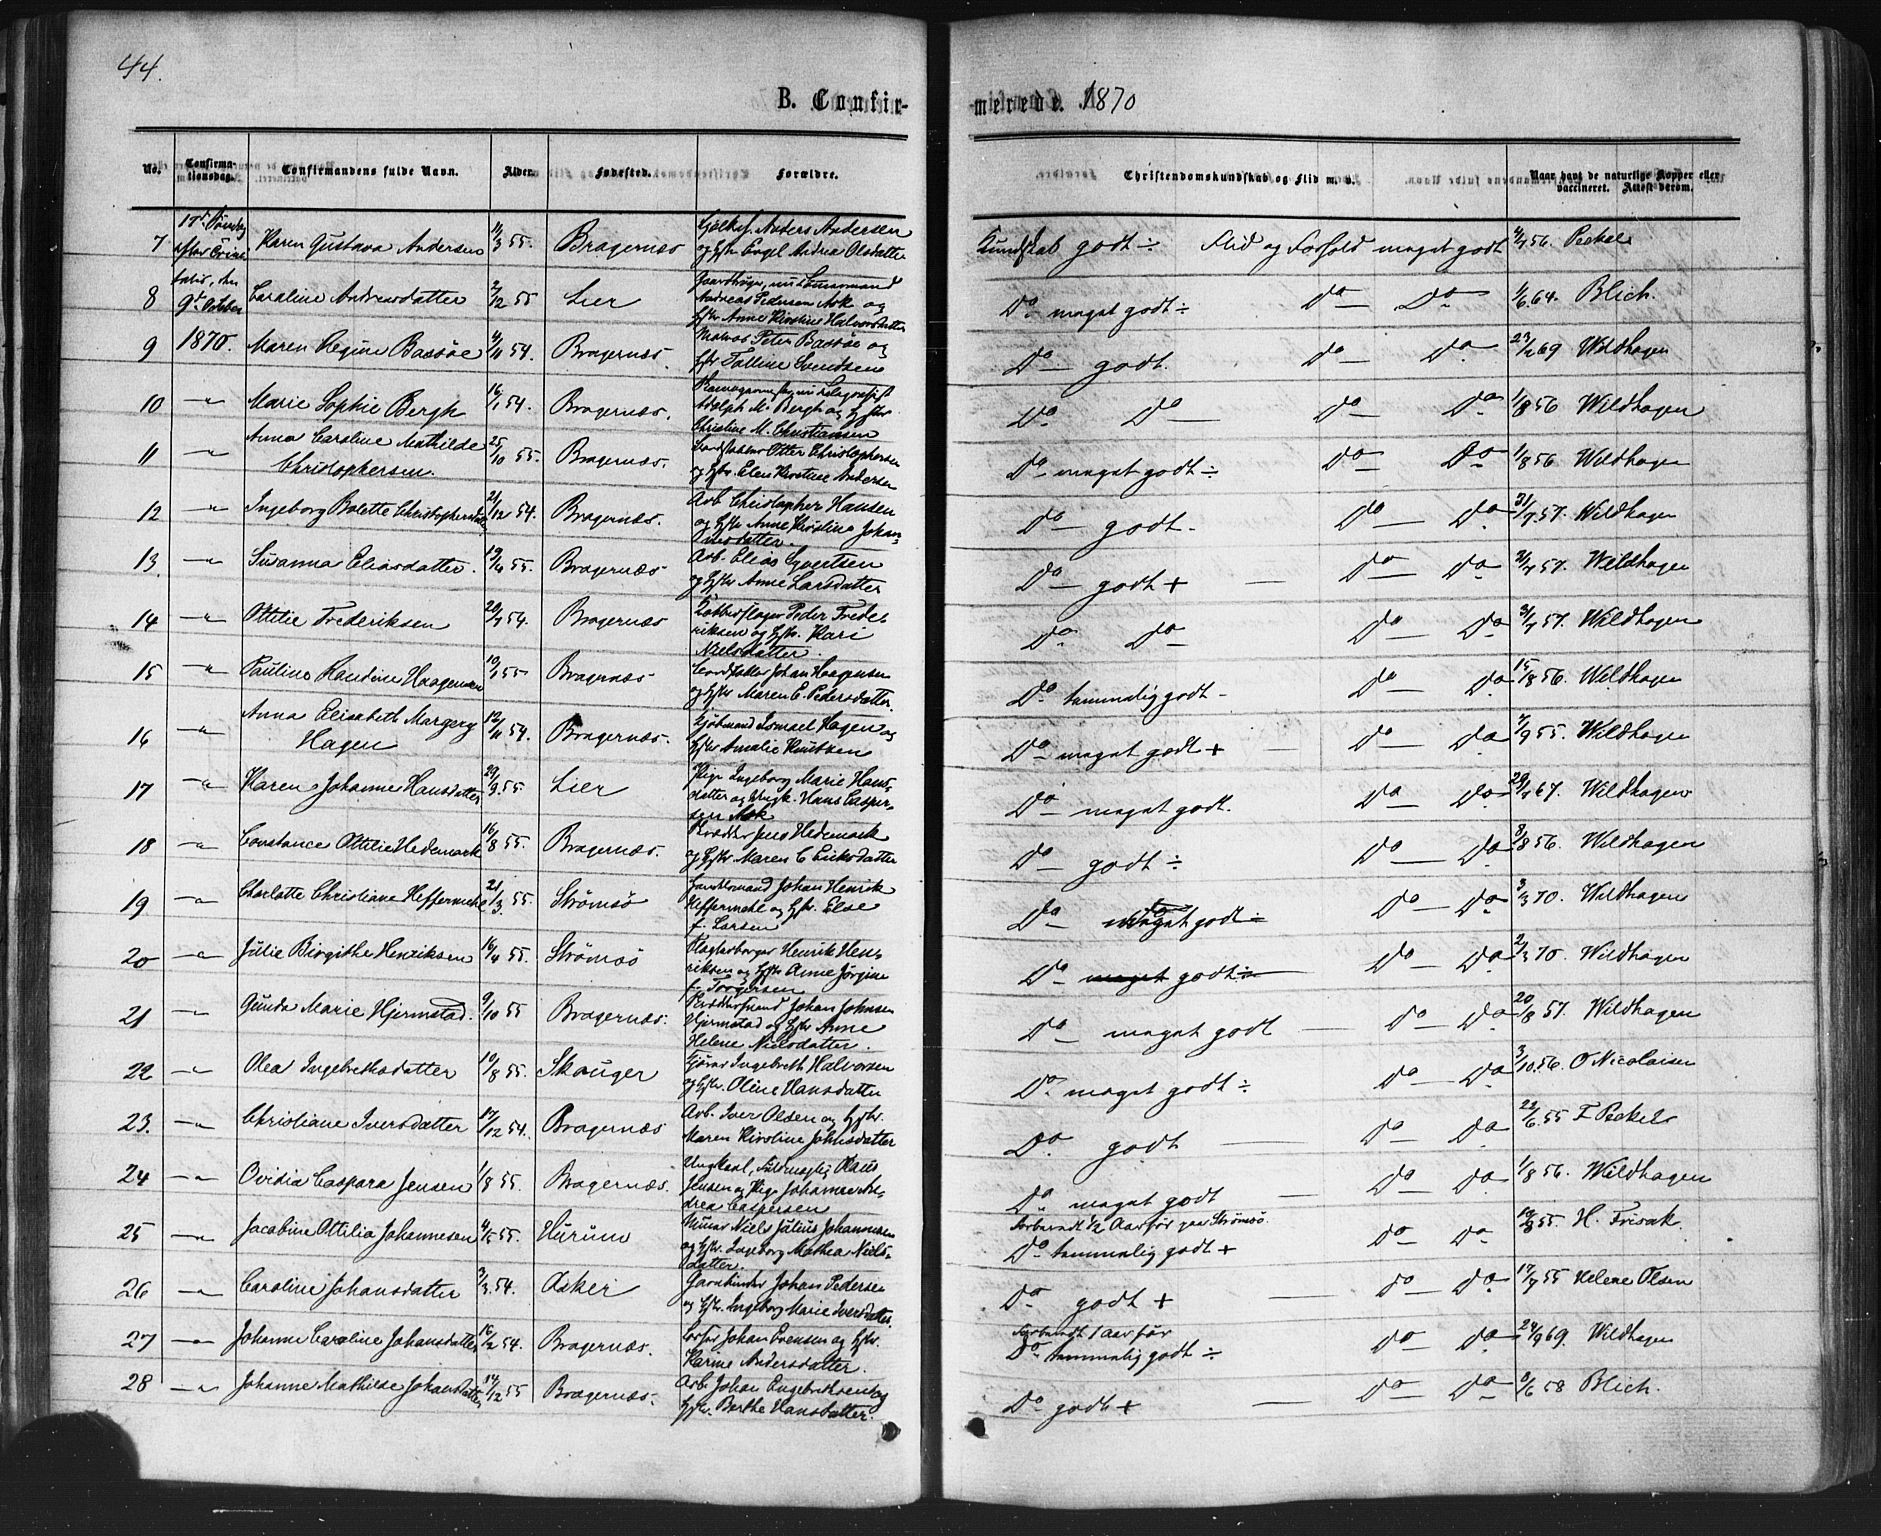 44.
B. Confir-
merede. 1870
No.
Confirma-
tionsdag.
Confirmandens fulde Navn.
Alder.
Fødested.
Forældre.
Christendomskundskab og Flid m. v.
Naar havt de naturlige Kopper eller
vaccineret. Attest derom.
7 17de Søndag efter Trinitatis, den 9de October 1870. Karen Gustava Andersen 55. Bragernæs Anders Andersen
og Hstr Engel Andrea Olsdatter
Kundskab godt ÷ Flid og Forhold meget godt 56. Peckel
8 Caroline Andreasdatter 2/12 55 Lier Andreas Pedersen Ask og
Hstr Anne Kirstine Halvorsdatter
Do meget godt ÷ Do Do 1/6 64. Blich.
9 Maren Regine Bassøe 54. Bragernæs. Matros Peter Bassøe og
Hstr Svendsen
Do godt. Do Do 69 Wildhagen
10 " Marie Sophie Bergh 16/1 54. Bragernæs.
Adolph M. Bergh og Hstr
Christine M. Christiansen
Do Do Do Do 1/8 56 Wildhagen
11 " Anna Caroline Mathilde
Christophersen. 25/10 55. Bragernæs. Otter Christophersen
og Hstr. Elen Kirstine Andersen
Do meget godt ÷ Do Do 1/8 56 Wildhagen
12 " Ingeborg Bolette Christophersdatter 21/12 54. Bragernæs. Arb. Christopher Hansen
og Hstr Anne Kirstine Johan-
nesdatter.
Do godt. Do Do 57. Wildhagen
13. " Susanna Eliasdatter. 55. Bragernæs Arb. Elias Syvertsen
og Hstr Anne Larsdatter
Do godt + Do Do 57. Wildhagen
14 " Ottilie Frederiksen 54. Bragernæs Kobberslager Peder Frede-
riksen og Hstr. Kari
Nielsdatter.
Do Do Do Do 57. Wildhagen
15 " Pauline Randine Haagensen 55. Bragernæs Johan Haagensen
og Hstr Maren E. Pedersdatter.
Do temmelig godt - Do Do 15/8 56. Wildhagen
16 " Anna Elisabeth Margery
Hagen 12/11 54. Bragernæs. Kjøbmand Ismael Hagen og
Hstr Amalie Knutsen
Do meget godt + Do Do 55. Wildhagen
17 " Karen Johanne Hansdatter 29/9 55 Lier Pige Ingeborg Marie Hans-
datter og Ungk. Hans Casper-
sen Ask
Do meget godt. Do Do 67. Wildhagen
18 " Constance Ottilie Hedemark 16/8 55. Bragernæs. Jens Hedemark
og Hstr Maren C. Eriksdatter
Do godt ÷ Do Do 56. Wildhagen
19 " Charlotte Christiane Heffermehl 21/3 55. Strømsø Handelsmand Johan Henrik
Heffermehl og Hstr. Else
f. Larsen
Do meget godt ÷ Do Do 3/3 70. Wildhagen
20 " Julie Birgithe Henriksen 16/4 55. Strømsø Henrik Hen-
riksen og Hstr Anne Jørgine
f. Torgersen
Do meget godt ÷ Do Do 2/3 70 Wildhagen
21 " Gunda Marie Hjermstad. 9/10 55 Bragernæs. Johan Johnsen
Hjermstad og Hstr Anne
Helene Nielsdatter.
Do meget godt Do Do 20/8 57. Wildhagen
22 " Olea Ingebrethsdatter 10/8 55. Skouger Ingebreth Halvorsen
og Hstr. Oline Hansdatter
Do meget godt ÷ Do Do 3/10 56. O Nicolaisen
23. " Christiane Iversdatter 17/12 54. Bragernæs Arb. Iver Olsen og Hstr.
Maren Kirstine Johnsdatter
Do godt Do Do 22/6 55 F Peckel
24 " Ovidia Caspara Jensen 1/8 55. Bragernæs. Ungkarl, Claus
Jensen og Pige Johanne An-
drea Caspersen
Do meget godt Do Do 1/8 56. Wildhagen
25 " Jacobine Ottilia Johannesen 55. Hurum Niels Julius Johannesen
og Hstr. Ingeborg Mathea Niels-
datter.
Forberedt 1/2 Aar før paa Strømsø.
Do temmelig godt + Do Do 55. H. Frisak.
26 " Caroline Johansdatter 3/3 54. Asker Johan Pedersen
og Hstr. Ingeborg Marie Iversdatter.
Do godt + Do Do 55 Helene Olsen
27 " Johanne Caroline Johansdatter 16/2 54. Bragernæs. Johan Evensen og Hstr.
Karine Andersdatter.
Forberedt 1 Aar før
Do temmelig godt ÷ Do Do 24/9 69. Wildhagen
28 " Johanne Mathilde Johansdatter 14/12 55 Bragernæs. Arb. Johan Engebrethsen og
Hstr. Berthe Hansdatter.
Do godt + Do Do 58 Blich.